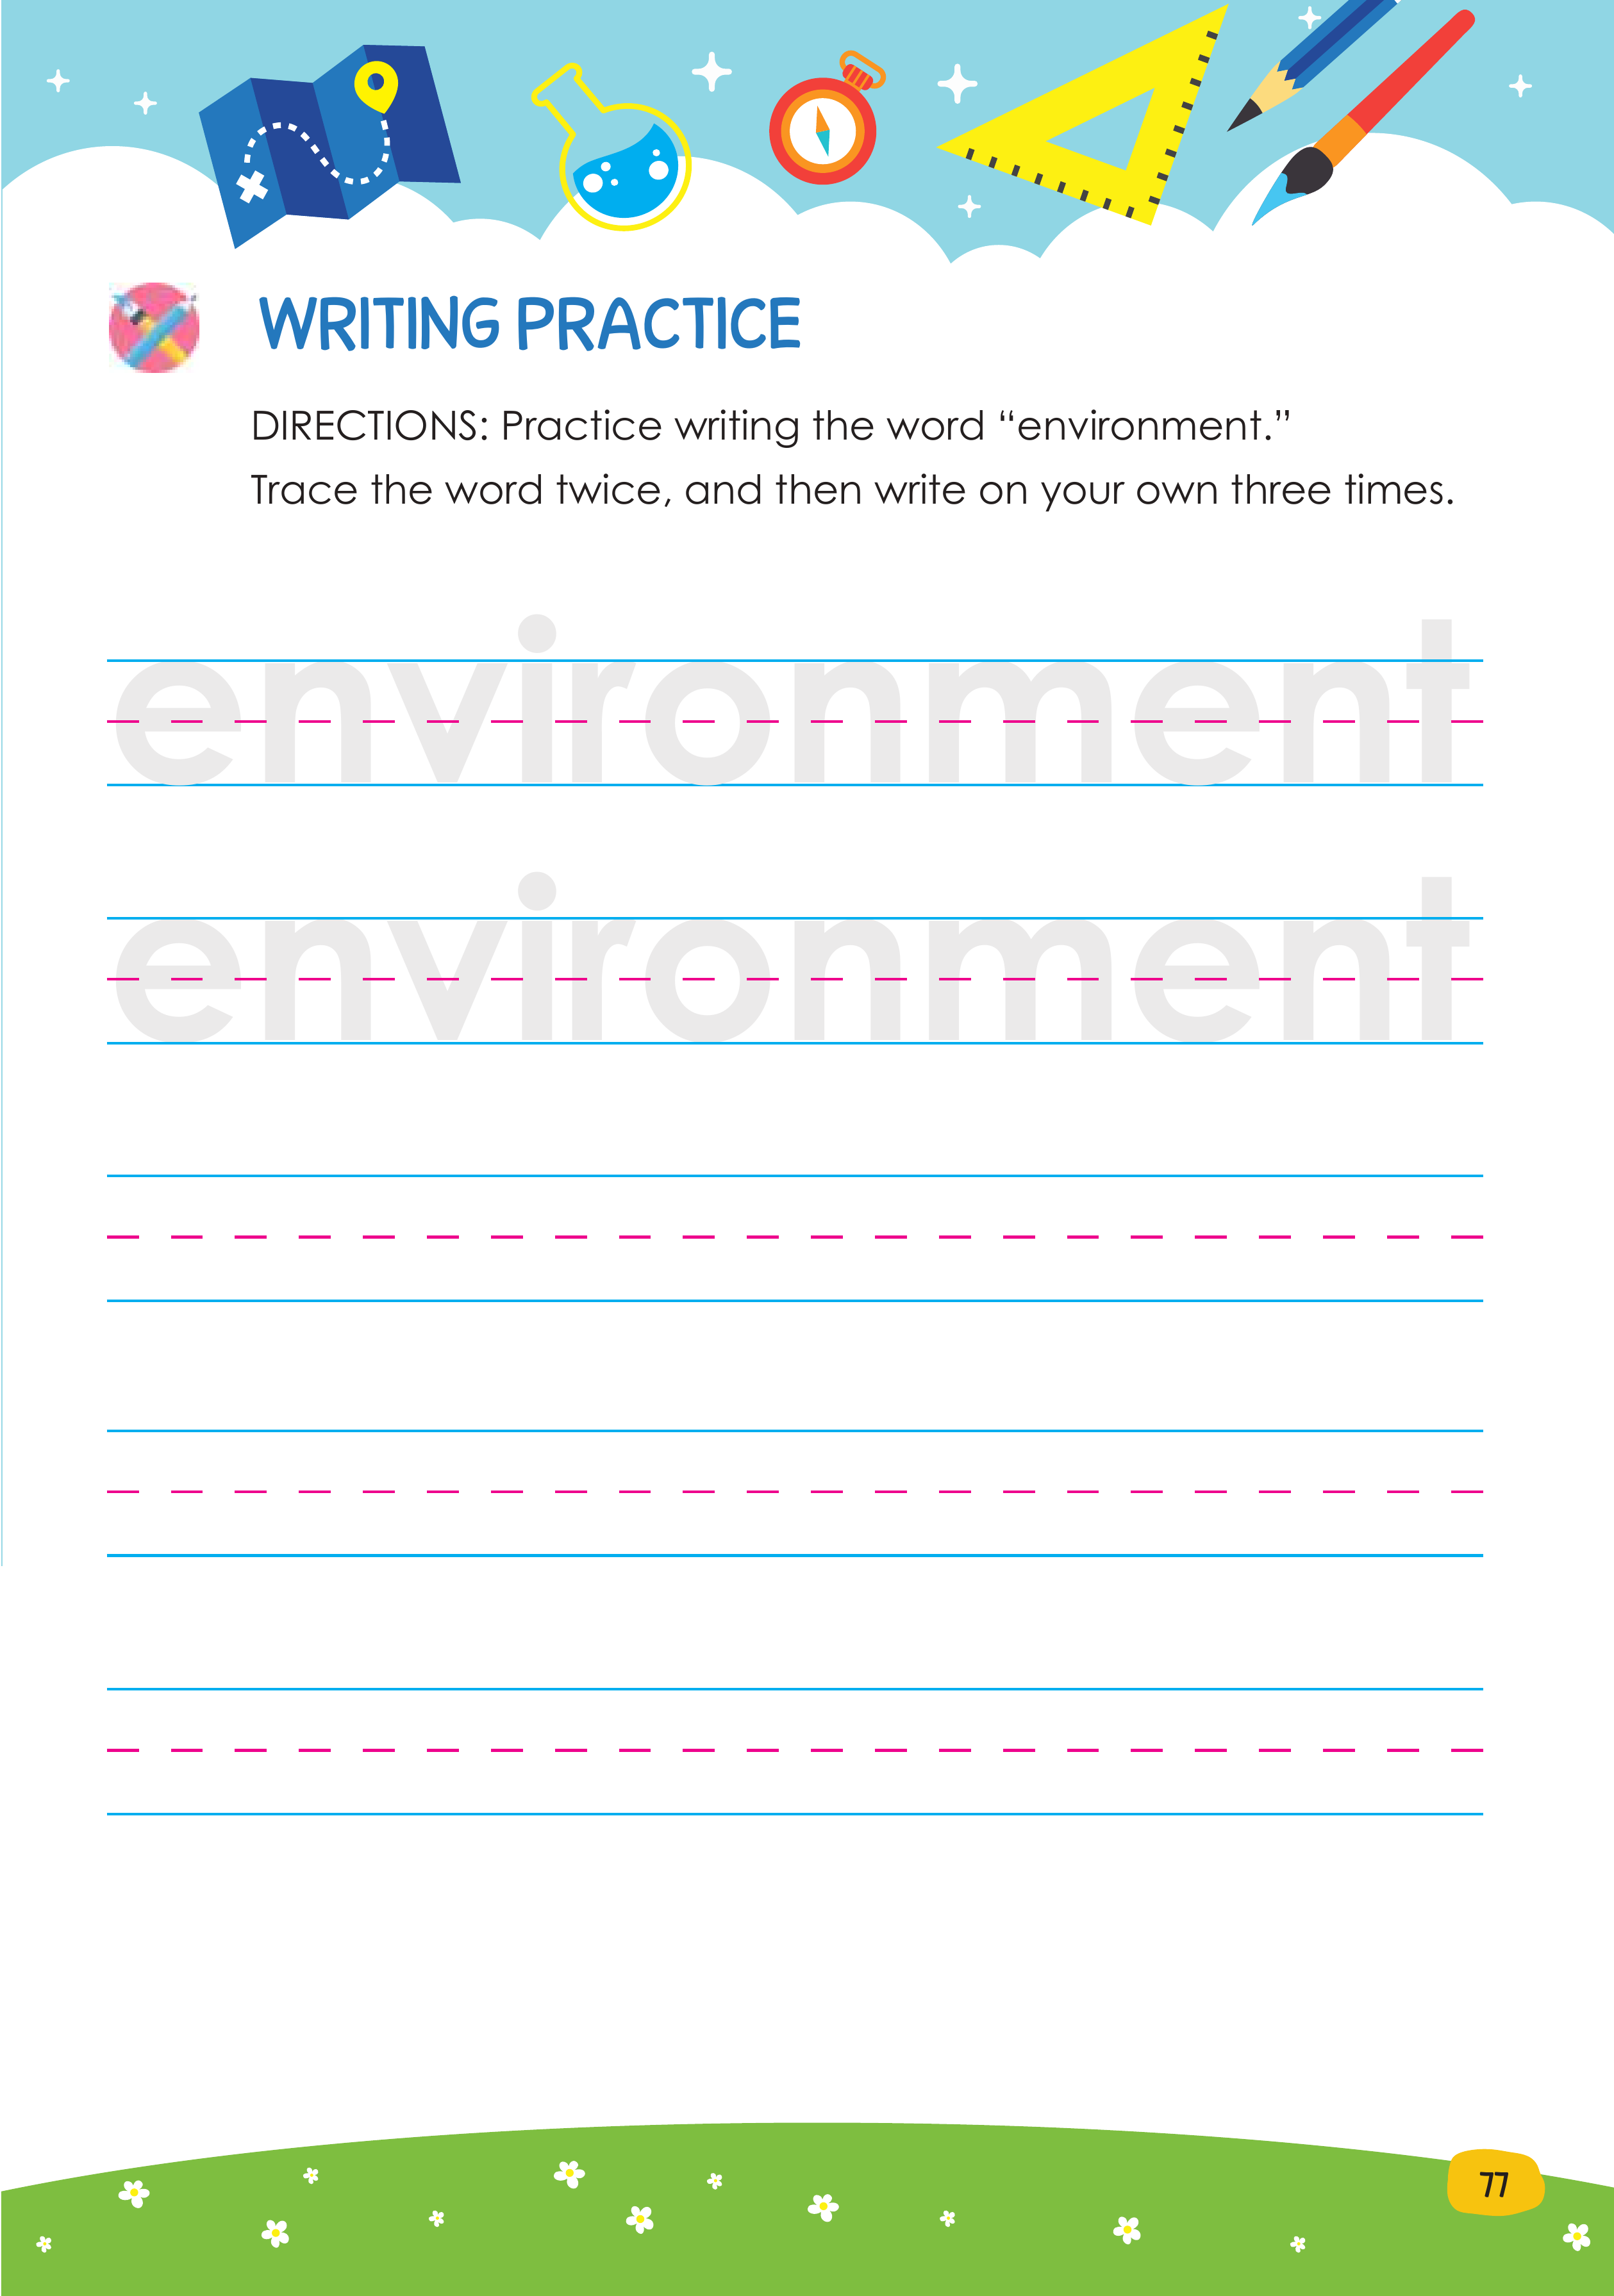 WRITING PRACTICE
DIRECTIONS: Practice writing the word “environment.”
Trace the word twice, and then write on your own three times.
environment
environment
77